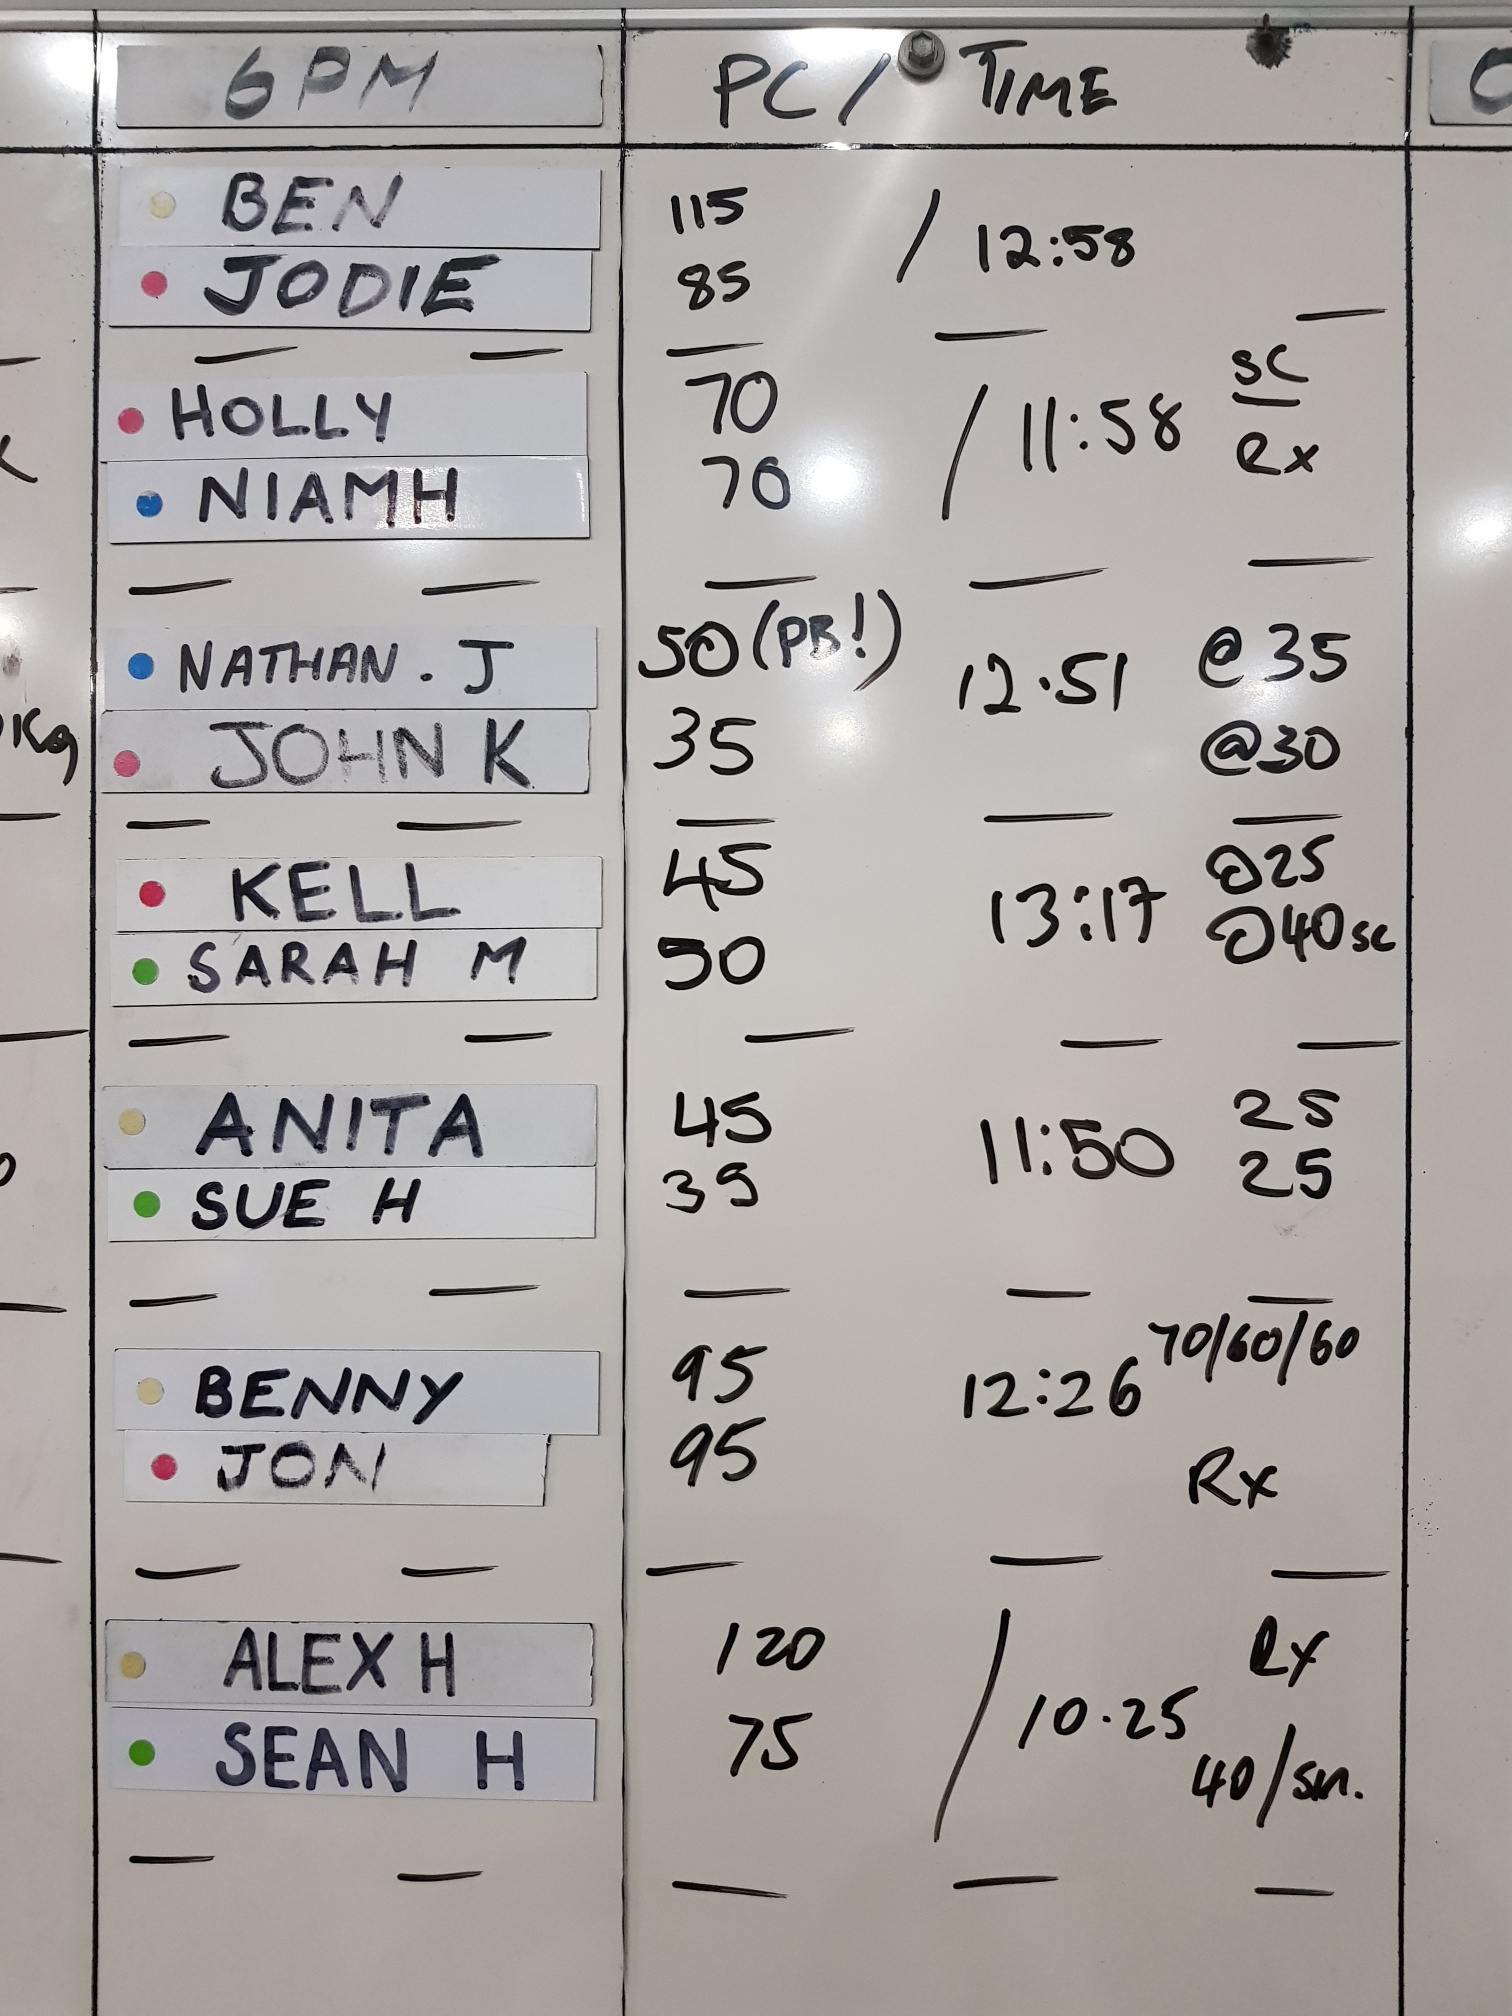 6PM PC / TIME
BEN 115 / 12:58
JODIE 85
HOLLY 70 / 11:58 SC
NIAMH 70 Rx
NATHAN . J 50 (PB!) 12.51 @35
JOHN K 35 @30
KELL 45 13:17 @25
SARAH M 50 @40 sc
ANITA 45 11:50 25
SUE H 35 25
BENNY 95 12:26 70/60/60
JON 95 Rx
ALEX H 120 / 10.25 Rx
SEAN H 75 40/
Kg